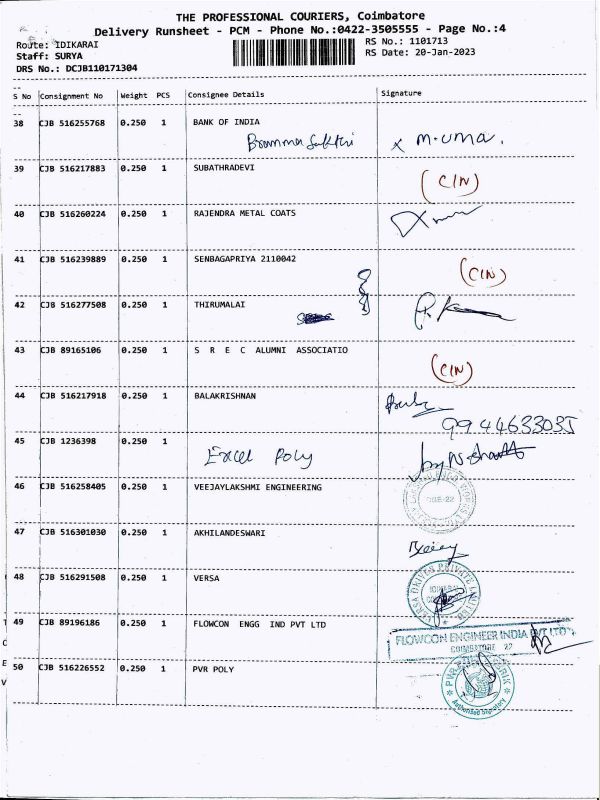 THE PROFESSIONAL COURIERS, Coimbatore
Delivery Runsheet - PCM - Phone No.:0422-3505555 - Page No.:4
Route: IDIKARAI
RS No.: 1101713
Staff: SURYA
RS Date: 20-Jan-2023
DRS No.: DCJB110171304
S No Consignment No Weight PCS Consignee Details Signature
38 CJB 516255768 0.250 1 BANK OF INDIA
M.UMA.
39 CJB 516217883 0.250 1 SUBATHRADEVI
(CIN)
40 CJB 516260224 0.250 1 RAJENDRA METAL COATS
41 CJB 516239889 0.250 1 SENBAGAPRIYA 2110042
(CIN)
42 CJB 516277508 0.250 1 THIRUMALAI
43 CJB 89165106 0.250 1 S R E C ALUMNI ASSOCIATIO
(CIN)
44 CJB 516217918 0.250 1 BALAKRISHNAN
9944633035
45 CJB 1236398 0.250 1
Excel Poly
46 CJB 516258405 0.250 1 VEEJAYLAKSHMI ENGINEERING
47 CJB 516301030 0.250 1 AKHILANDESWARI
48 CJB 516291508 0.250 1 VERSA
VERSA DRIVES PRIVATE LIMITED
49 CJB 89196186 0.250 1 FLOWCON ENGG IND PVT LTD
FLOWCON ENGINEER INDIA PVT LTD
COIMBATORE 22
50 CJB 516226552 0.250 1 PVR POLY
Authorised Signatory